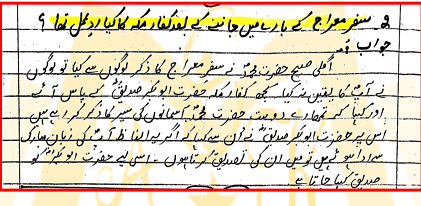 2۔ سفر معراج کے بارے میں جاننے کے بعد کفار مکہ کا کیا ردِ عمل تھا؟
جواب:
اگلی صبح حضرت محمدؐ نے سفر معراج کا ذکر لوگوں سے کیا تو لوگوں
نے آپؐ کا یقین نہ کیا۔ کچھ کفار مکہ حضرت ابوبکر صدیقؓ کے پاس آئے
اور کہا کہ تمھارے دوست حضرت محمدؐ آسمانوں کی سیر کا ذکر کر رہے ہیں
اس پر حضرت ابوبکر صدیقؓ نے ان سے کہا کہ اگر یہ الفاظ آپؐ کی زبان مبارک
سے ادا ہوئے ہیں تو میں ان کی تصدیق کرتا ہوں۔ اسی لیے حضرت ابوبکرؓ کو
صدیق کہا جاتا ہے